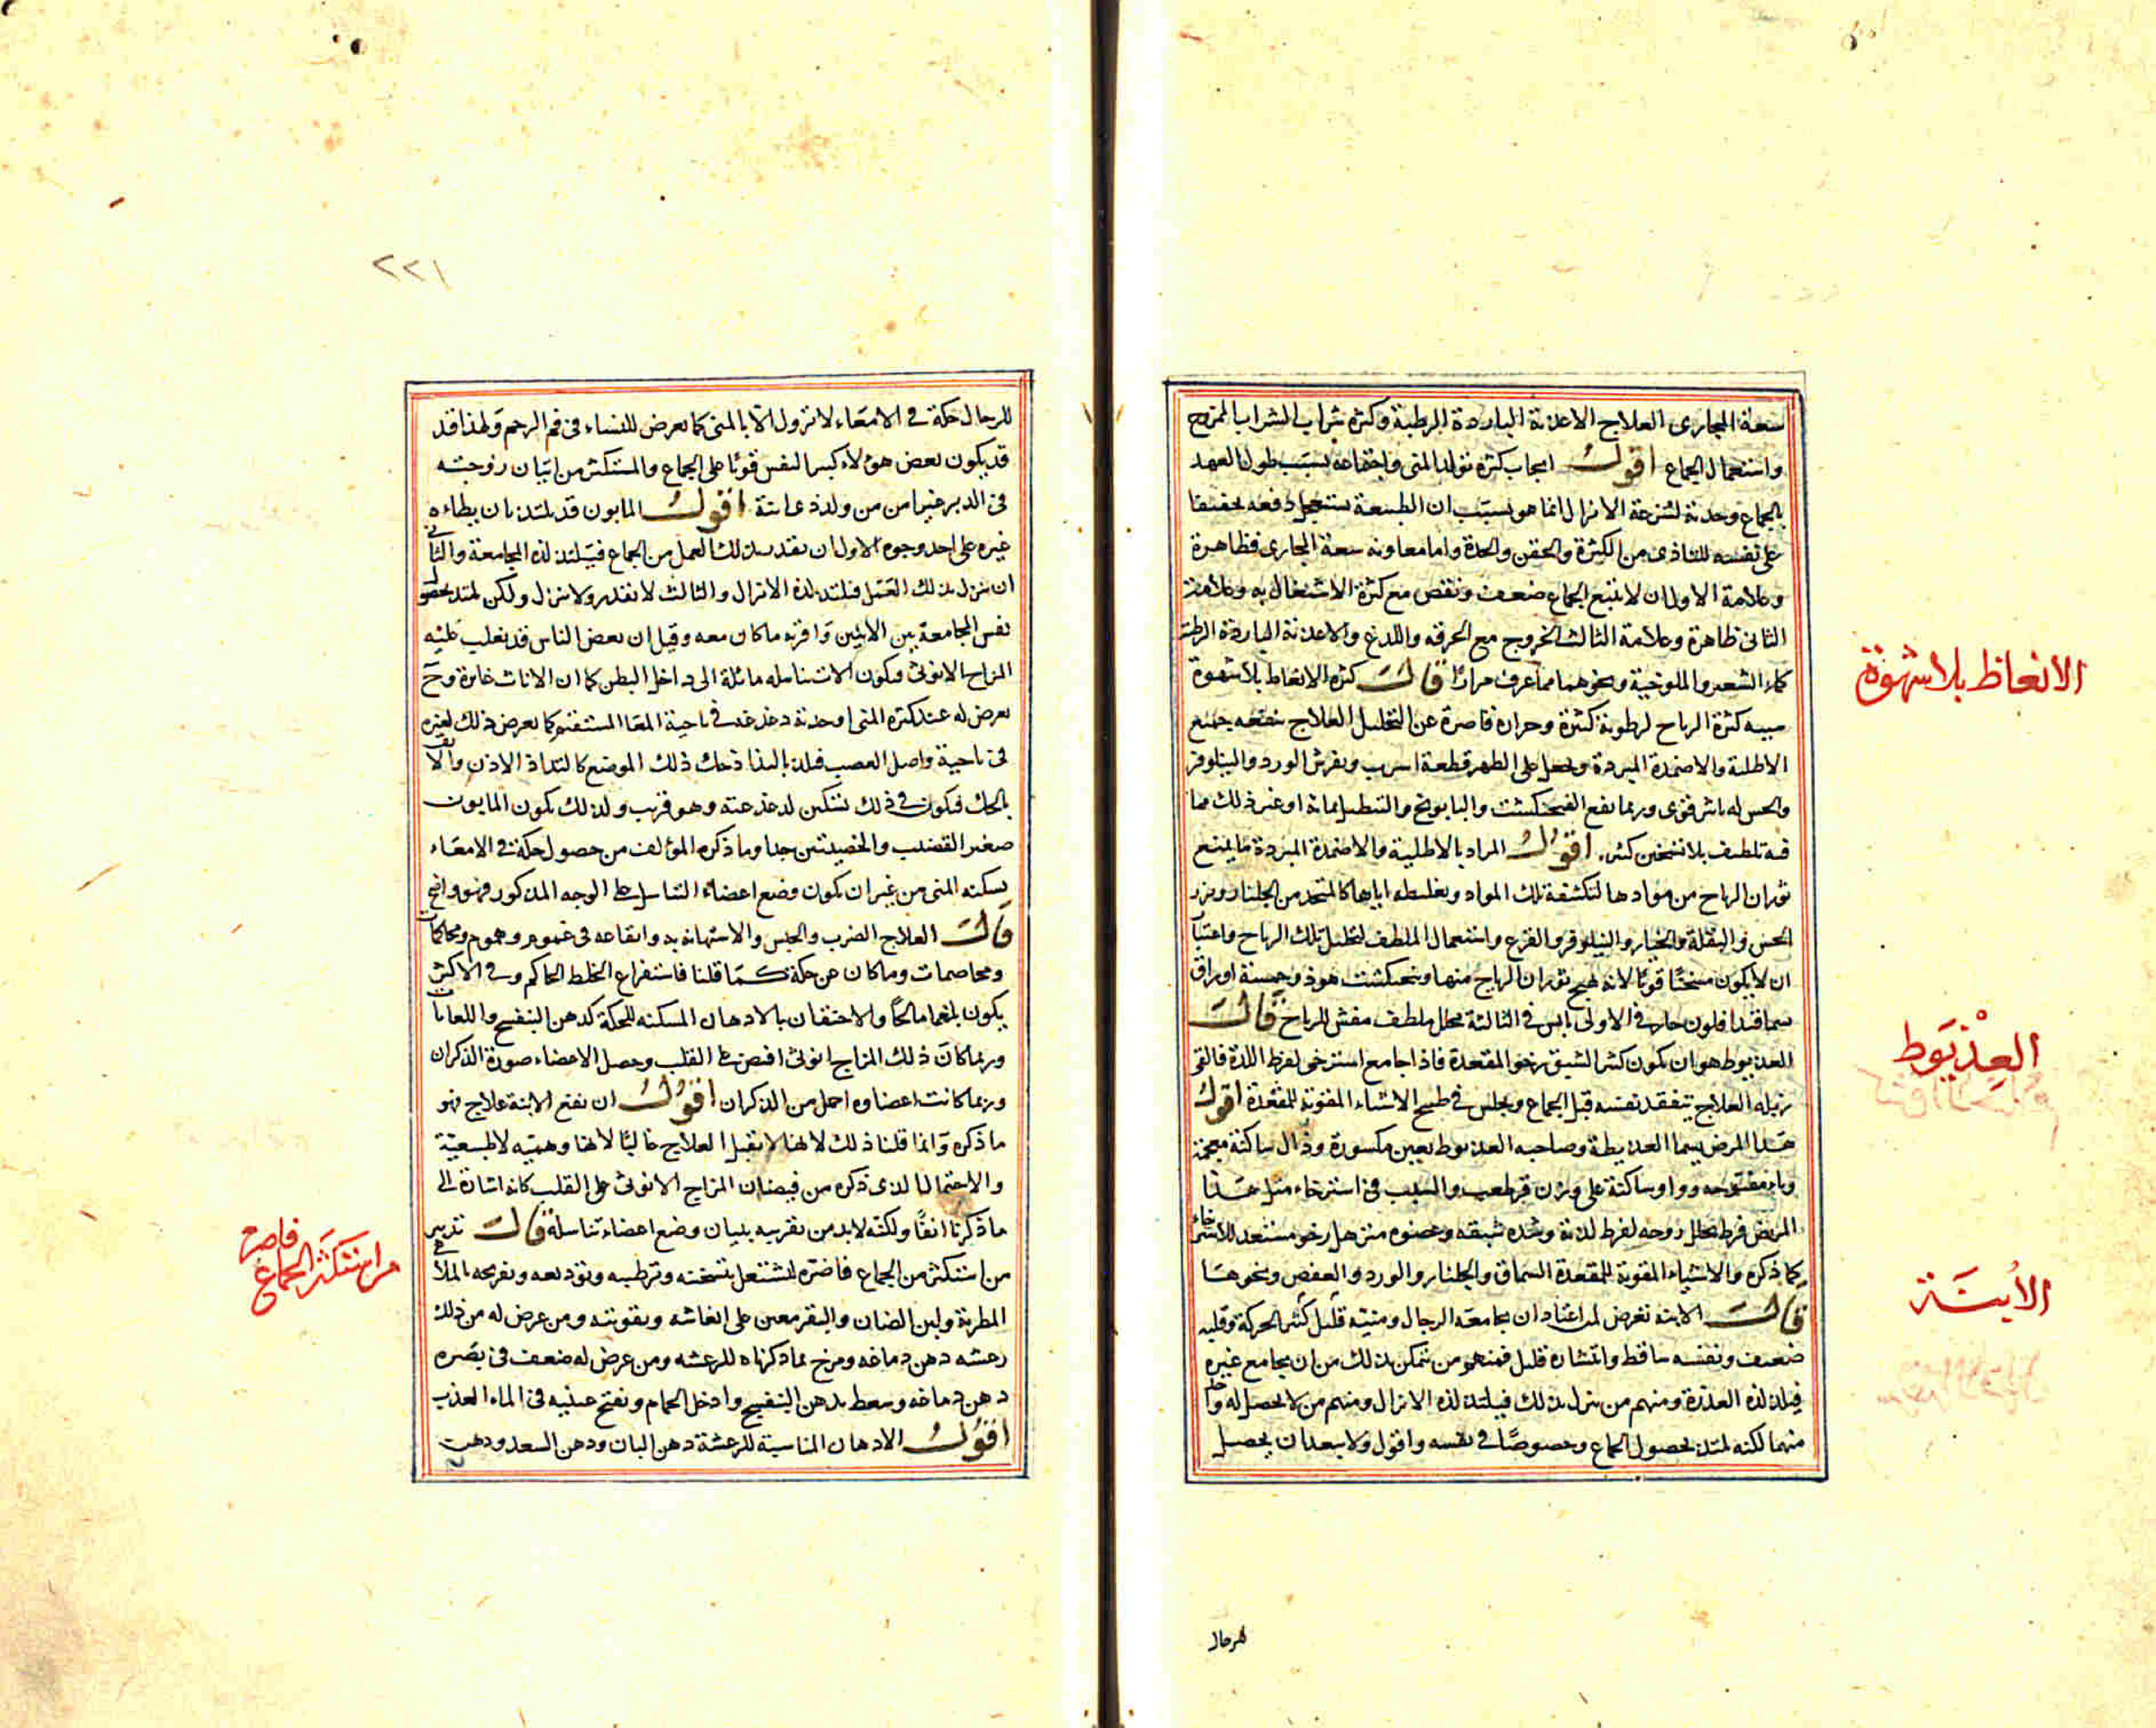 سعة المجارى العلاج الاغذية الباردة الرطبة وكثرة شراب الشراب الممزوج
واستعمال الجماع اقول ايجاب كثرة تولد المنى واجتماعه بسبب طول العهد
بالجماع وحدته لسرعة الانزال انما هو بسبب ان الطبيعة تستعجل دفعه تخفيفا
على نفسه للتاذى من الكثرة والحقن والحدة واما معاونة سعة المجارى فظاهرة
وعلامة الاول ان لا يتبع الجماع ضعف ونقص مع كثرة الاشتغال به وعلامة
الثانى ظاهرة وعلامة الثالث الخروج مع الحرقة واللدغ والاغذية الباردة الرطبة
كماء الشعير والملوخية ونحوهما مما عرف مرارا قال كثرة الانعاظ بلا شهوة
سببه كثرة الرياح لرطوبة كثيرة وحرارة قاصرة عن التحليل العلاج ينفعه جميع
الاطلية والاضمدة المبردة ويجعل على الظهر قطعة اسرب ويفرش الورد والنيلوفر
والخس له تاثير قوى وربما نفع الفنجنكشت والبابونج والتنطيل بمائه او غير ذلك مما
فيه تلطيف بلا تسخين كثير اقول المراد بالاطلية والاضمدة المبردة ما يمنع
ثوران الرياح من موادها لتكثيفه تلك المواد وتغليظه اياها كالمتخذ من الجلنار وبزر
الخس والبقلة والخيار والنيلوفر والقرع واستعمال الملطف لتحليل تلك الرياح واعتبا
ان لا يكون مسخنا قويا لانه يهيج ثوران الرياح منها وفنجنكشت هو ذو خمسة اوراق
يسما فنداقلون حار فى الاولى يابس فى الثالثة محلل ملطف مفش للرياح قال
العذيوط هو ان يكون كثير الشبق رخو المقعدة فاذا جامع استرخى لفرط اللذة فالقى
زبله العلاج يتفقد نفسه قبل الجماع ويجلس فى طبيخ الاشياء المقوية للمقعدة اقول
هذا المرض يسما العذيطة وصاحبه العذيوط بعين مكسورة وذال ساكنة معجمة
وياء مفتوحة وواو ساكنة على وزن قرطعب والسبب فى استرخاء مثل هذا
المريض فرط تحلل روحه لفرط لذته وشدة شبقه وعضوه مترهل رخو مستعد للاسترخاء
كما ذكره والاشياء المقوية للمقعدة السماق والجلنار والورد والعفص ونحوها
قال الابنه تعرض لمن اعتاد ان يجامعه الرجال ومنيه قليل كثير الحركة وقلبه
ضعيف ونفسه ساقط وانتشاره قليل فمنهم من يتمكن بذلك من ان يجامع غيره
فيلتذ لذة العذرة ومنهم من ينزل بذلك فيلتذ لذة الانزال ومنهم من لا يحصل له واحد
منهما لكنه يلتذ بحصول الجماع وخصوصا فى نفسه واقول ولا يبعد ان يحصل
للرجال
الانعاظ بلا شهوة
العِذْيَوط
الأبنَة
٢٢١
للرجال حكة فى الامعاء لا تزول الا بالمنى كما يعرض للنساء فى فم الرحم ولهذا قد
قد يكون بعض هؤلاء كبير النفس قويا على الجماع والمستكثر من اتيان زوجته
فى الدبر خيرا من من ولد ذى ابنة اقول المابون قد يلتذ بان يطاءه
غيره على احد وجوه الاول ان يقدر بذلك العمل من الجماع فيلتذ لذة المجامعة والثانى
ان ينزل بذلك العمل فيلتذ لذة الانزال والثالث لا يقدر ولا ينزل ولكن يلتذ بحصول
نفس المجامعة بين الاثنين واقربه ما كان معه وقيل ان بعض الناس قد يغلب عليه
المزاج الانوثى فيكون الات تناسله مائلة الى داخل البطن كما ان الاناث غائرة وح
يعرض له عند كثرة المنى او حدته دغدغه فى ناحية المعا المستقيم كما يعرض ذلك لغيره
فى ناحية واصل العصب فيلتذ بالذا ذحك ذلك الموضع كالتذاذ الاذن والانف
بالحك فيكون فى ذلك تسكين لدغدغته وهو قريب ولذلك يكون المابون
صغير القضيب والخصيتين جدا وما ذكره المؤلف من حصول حكة فى الامعاء
يسكنه المنى من غير ان يكون وضع اعضاء التناسل على الوجه المذكور فهو واضح
قال العلاج الضرب والحبس والاستهانة به وايقاعه فى غموم وهموم ومحاكمات
ومخاصمات وما كان عن حكة كما قلنا فاستفراغ الخلط الحاكم وفى الاكثر
يكون بلغما مالحا والاحتقان بالادهان المسكنه للحكة كدهن البنفسج واللعابات
وربما كان ذلك المزاج انوثى افيض على القلب وحصل الاعضاء صورة الذكران
وربما كانت اعضاوه اجمل من الذكران اقول ان نفع الابنة علاج فهو
ما ذكره وانما قلنا ذلك لانها لا تقبل العلاج غالبا لانها وهميه لا طبيعية
والاحتمال الذى ذكره من فيضان المزاج الانوثى على القلب كانه اشارة الى
ما ذكرنا انفا ولكنه لا بد من تقريبه ببيان وضع اعضاء تناسله قال تدبير
من استكثر من الجماع فاضره ليشتغل بتسخنه وترطيبه وتوديعه وتفريحه الملاهى
المطربة ولبن الضان والبقر معين على انعاشه وتقويته ومن عرض له من ذلك
رعشه دهن دماغه ومرخ بما ذكرناه للرعشه ومن عرض له ضعف فى بصره
دهن دماغه وسعط بدهن البنفسج وادخل الحمام وتفتح عينيه فى الماء العذب
اقول الادهان المناسبة للرعشة دهن البان ودهن السعد ودهن
من استكثر الجماع فاضره